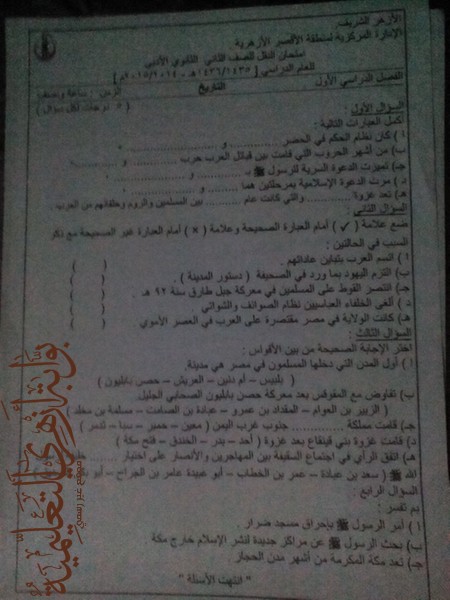 الأزهر الشريف
الإدارة المركزية لمنطقة الأقصر الأزهرية
امتحان النقل للصف الثاني الثانوي الأدبي
للعام الدراسي [ ١٤٣٥/١٤٣٦هـ - ٢٠١٤/٢٠١٥م ]
الفصل الدراسي الأول التاريخ الزمن : ساعة ونصف
( ٥ درجات لكل سؤال )
السؤال الأول :
أكمل العبارات التالية :
أ ) كان نظام الحكم في الحضر .......... و ..........
ب) من أشهر الحروب التي قامت بين قبائل العرب حرب .......... و ..........
جـ) تميزت الدعوة السرية للرسول ﷺ بـ .......... و ..........
د ) مرت الدعوة الإسلامية بمرحلتين هما .......... و ..........
هـ) تعد غزوة .......... والتي كانت عام .......... بين المسلمين والروم وحلفائهم من العرب
السؤال الثاني :
ضع علامة ( ✓ ) أمام العبارة الصحيحة وعلامة ( × ) أمام العبارة غير الصحيحة مع ذكر
السبب في الحالتين :
أ ) اتسم العرب بتباين عاداتهم . ( )
ب) التزم اليهود بما ورد في الصحيفة ( دستور المدينة ) . ( )
جـ) انتصر القوط على المسلمين في معركة جبل طارق سنة ٩٢ هـ . ( )
د ) ألغى الخلفاء العباسيين نظام الصوائف والشواتي ( )
هـ) كانت الولاية في مصر مقتصرة على العرب في العصر الأموي ( )
السؤال الثالث :
اختر الإجابة الصحيحة من بين الأقواس :
أ ) أول المدن التي دخلها المسلمون في مصر هي مدينة.
( بلبيس – أم دنين – العريش – حصن بابليون )
ب) تفاوض مع المقوقس بعد معركة حصن بابليون الصحابي الجليل.
( الزبير بن العوام – المقداد بن عمرو – عبادة بن الصامت – مسلمة بن مخلد )
جـ) قامت مملكة .......... جنوب غرب اليمن ( معين – حمير – سبأ – تدمر )
د) قامت غزوة بني قينقاع بعد غزوة ( أحد – بدر – الخندق – فتح مكة )
هـ) اتفق الرأي في اجتماع السقيفة بين المهاجرين والأنصار على اختيار ..........
الله ﷺ ( سعد بن عبادة – عمر بن الخطاب – أبو عبيدة عامر بن الجراح – أبو
السؤال الرابع :
بم تفسر :
أ ) أمر الرسول ﷺ بإحراق مسجد ضرار .
ب) بحث الرسول ﷺ عن مراكز جديدة لنشر الإسلام خارج مكة
جـ) تعد مكة المكرمة من أشهر مدن الحجاز .
" انتهت الأسئلة "
بوابة أزهري التعليمية
موقع غير رسمي